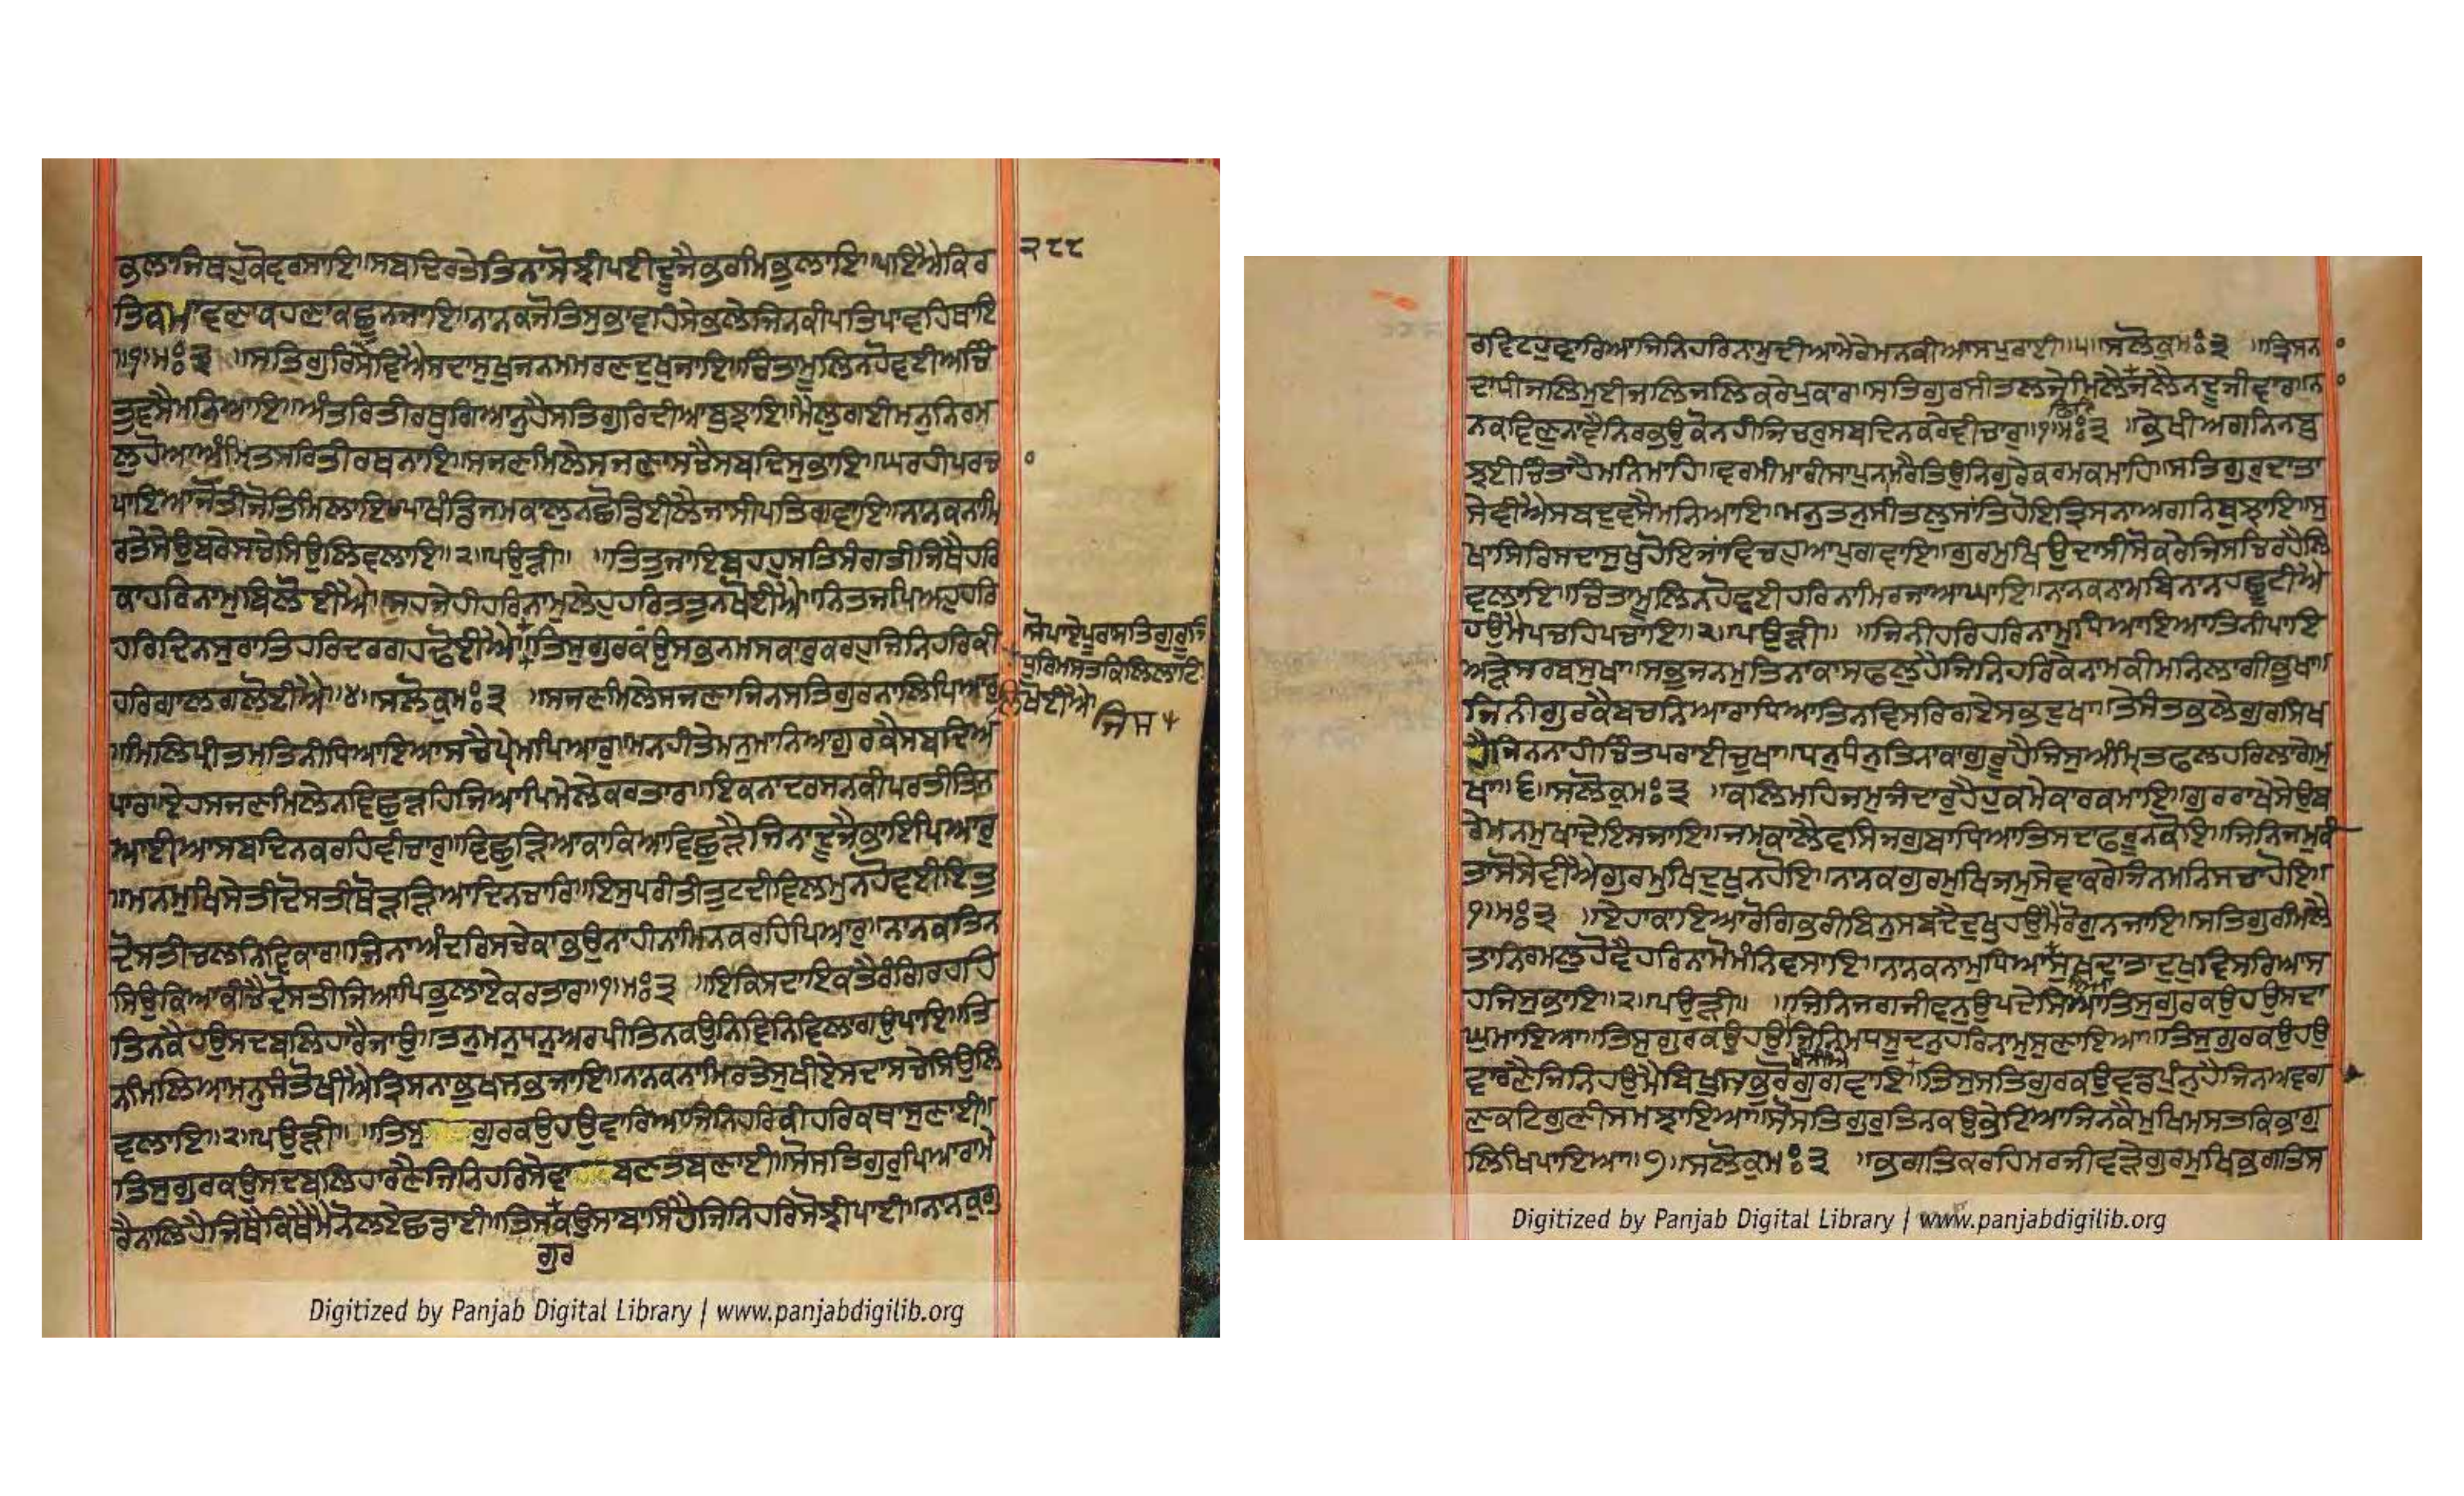 ਭੁਲਾਜਿਥਹੁਕੋਦਰਸਾਇ॥ਸਬਦਿਰਤੇਤਿਨਾਸੋਝੀਪਈਦੂਜੈਭਰਮਿਭੁਲਾਇ॥ਪਇਐਕਿਰ ੨੮੮
ਤਿਕਮਾਵਣਾਕਹਣਾਕਛੂਨਜਾਇ॥ਨਾਨਕਜੋਤਿਸੁਭਾਵਹਿਸੇਭਲੇਜਿਨਕੀਪਤਿਪਾਵਹਿਥਾਇ
॥੧॥ਮਃ੩ ॥ਸਤਿਗੁਰਿਸੇਵਿਐਸਦਾਸੁਖੁਜਨਮਮਰਣਦੁਖੁਜਾਇ॥ਚਿੰਤਾਮੂਲਿਨਹੋਵਈਅਚਿੰ
ਤੁਵਸੈਮਨਿਆਇ॥ਅੰਤਰਿਤੀਰਥੁਗਿਆਨੁਹੈਸਤਿਗੁਰਿਦੀਆਬੁਝਾਇ॥ਮੈਲੁਗਈਮਨੁਨਿਰਮ
ਲੁਹੋਆਅੰਮ੍ਰਿਤਸਰਿਤੀਰਥਨਾਇ॥ਸਜਣਮਿਲੇਸਜਣਾਸਚੈਸਬਦਿਸੁਭਾਇ॥ਘਰਹੀਪਰਚਾ
ਪਾਇਆਜੋਤੀਜੋਤਿਮਿਲਾਇ॥ਪਾਖੰਡਿਜਮਕਾਲੁਨਛੋਡਈਲੈਜਾਸੀਪਤਿਗਵਾਇ॥ਨਾਨਕਨਾਮਿ
ਰਤੇਸੇਉਬਰੇਸਚੇਸਿਉਲਿਵਲਾਇ॥੨॥ਪਉੜੀ॥ ॥ਤਿਤੁਜਾਇਬਹਹੁਸਤਿਸੰਗਤੀਜਿਥੈਹਰਿ
ਕਾਹਰਿਨਾਮੁਬਿਲੋਈਐ॥ਸਹਜੇਹੀਹਰਿਨਾਮੁਲੇਹੁਹਰਿਤਤੁਨਖੋਈਐ॥ਨਿਤਜਪਿਅਹੁਹਰਿ
ਹਰਿਦਿਨਸੁਰਾਤਿਹਰਿਦਰਗਹਢੋਈਐ॥ਤਿਸੁਗੁਰਕੰਉਸਭੁਨਮਸਕਾਰੁਕਰਹੁਜਿਨਿਹਰਿਕੀ
ਸੋਪਾਏਪੂਰਾਸਤਿਗੁਰੂਜਿ
ਧੁਰਿਮਸਤਕਿਲਿਲਾਟਿ
ਲਿਖੋਈਐ ਜਿਸ
ਹਰਿਗਾਲਗਲੋਈਐ॥੪॥ਸਲੋਕੁਮਃ੩ ॥ਸਜਣਮਿਲੇਸਜਣਾਜਿਨਸਤਿਗੁਰਨਾਲਿਪਿਆਰੁ
॥ਮਿਲਿਪ੍ਰੀਤਮਤਿਨੀਧਿਆਇਆਸਚੈਪ੍ਰੇਮਪਿਆਰੁ॥ਮਨਹੀਤੇਮਨੁਮਾਨਿਆਗੁਰਕੈਸਬਦਿਅ
ਪਾਰਾ॥ਏਹਸਜਣਮਿਲੇਨਵਿਛੁੜਹਿਜਿਆਪਿਮੇਲੇਕਰਤਾਰਾ॥ਇਕਨਾਦਰਸਨਕੀਪਰਤੀਤਿਨ
ਆਈਆਸਬਦਿਨਕਰਹਿਵੀਚਾਰੁ॥ਵਿਛੁੜਿਆਕਾਕਿਆਵਿਛੁੜੈਜਿਨਾਦੂਜੈਭਾਇਪਿਆਰੁ
॥ਮਨਮੁਖਿਸੇਤੀਦੋਸਤੀਥੋੜੜਿਆਦਿਨਚਾਰਿ॥ਇਸੁਪਰੀਤੀਤੁਟਦੀਵਿਲਮੁਨਹੋਵਈਇਤੁ
ਦੋਸਤੀਚਲਨਿਵਿਕਾਰਾ॥ਜਿਨਾਅੰਦਰਿਸਚੇਕਾਭਉਨਾਹੀਨਾਮਿਨਕਰਹਿਪਿਆਰੁ॥ਨਾਨਕਤਿਨ
ਸਿਉਕਿਆਕੀਚੈਦੋਸਤੀਜਿਆਪਿਭੁਲਾਏਕਰਤਾਰਾ॥੧॥ਮਃ੩ ॥ਇਕਿਸਦਾਇਕਤੈਰੰਗਿਰਹਹਿ
ਤਿਨਕੈਹਉਸਦਬਲਿਹਾਰੈਜਾਉ॥ਤਨੁਮਨੁਧਨੁਅਰਪੀਤਿਨਕਉਨਿਵਿਨਿਵਿਲਾਗਉਪਾਇ॥ਤਿ
ਨਮਿਲਿਆਮਨੁਸੰਤੋਖੀਐਤ੍ਰਿਸਨਾਭੁਖਸਭਜਾਇ॥ਨਾਨਕਨਾਮਿਰਤੇਸੁਖੀਏਸਦਾਸਚੇਸਿਉਲਿ
ਵਲਾਇ॥੨॥ਪਉੜੀ॥ ॥ਤਿਸੁ ਗੁਰਕਉਹਉਵਾਰਿਆਜਿਨਿਹਰਿਕੀਹਰਿਕਥਾਸੁਣਾਈ॥
ਤਿਸੁਗੁਰਕਉਸਦਬਲਿਹਾਰਣੈਜਿਨਿਹਰਿਸੇਵਾ ਬਣਤਬਣਾਈ॥ਸੋਸਤਿਗੁਰੁਪਿਆਰਾਮੇ
ਰੈਨਾਲਿਹੈਜਿਥੈਕਿਥੈਮੈਨੋਲਏਛਡਾਈ॥ਤਿਸਕਉਸਾਬਾਸਿਹੈਜਿਨਿਹਰਿਸੋਝੀਪਾਈ॥ਨਾਨਕੁਗੁ
ਗੁਰ
Digitized by Panjab Digital Library | www.panjabdigilib.org
ਰਵਿਟਹੁਵਾਰਿਆਜਿਨਿਹਰਿਨਾਮੁਦੀਆਮੇਰੇਮਨਕੀਆਸਪੁਰਾਈ॥੫॥ਸਲੋਕੁਮਃ੩ ॥ਤ੍ਰਿਸਨਾ
ਦਾਧੀਜਲਿਮੁਈਜਲਿਜਲਿਕਰੇਪੁਕਾਰਾ॥ਸਤਿਗੁਰਸੀਤਲਜੇਮਿਲੈਜਲੈਨਦੂਜੀਵਾਰਾ॥ਨਾ
ਨਕਵਿਣੁਨਾਵੈਨਿਰਭਉਕੋਨਹੀਜਿਚਰੁਸਬਦਿਨਕਰੇਵੀਚਾਰੁ॥੧॥ਮਃ੩ ॥ਭੇਖੀਅਗਨਿਨਬੁ
ਝਈਚਿੰਤਾਹੈਮਨਿਮਾਹਿ॥ਵਰਮੀਮਾਰੀਸਾਪੁਨਮਰੈਤਿਉਨਿਗੁਰੇਕਰਮਕਮਾਹਿ॥ਸਤਿਗੁਰੁਦਾਤਾ
ਸੇਵੀਐਸਬਦੁਵਸੈਮਨਿਆਇ॥ਮਨੁਤਨੁਸੀਤਲੁਸਾਂਤਿਹੋਇਤ੍ਰਿਸਨਾਅਗਨਿਬੁਝਾਇ॥ਸੁ
ਖਾਸਿਰਿਸਦਾਸੁਖੁਹੋਇਜਾਂਵਿਚਹੁਆਪੁਗਵਾਇ॥ਗੁਰਮੁਖਿਉਦਾਸੀਸੋਕਰੇਜਿਸਚਿਰਹੈਲਿ
ਵਲਾਇ॥ਚਿੰਤਾਮੂਲਿਨਹੋਵਈਹਰਿਨਾਮਿਰਜਾਆਘਾਇ॥ਨਾਨਕਨਾਮਬਿਨਾਨਹਛੂਟੀਐ
ਹਉਮੈਪਚਹਿਪਚਾਇ॥੨॥ਪਉੜੀ॥ ॥ਜਿਨੀਹਰਿਹਰਿਨਾਮੁਧਿਆਇਆਤਿਨੀਪਾਇ
ਅੜੇਸਰਬਸੁਖਾ॥ਸਭੁਜਨਮੁਤਿਨਾਕਾਸਫਲੁਹੈਜਿਨਿਹਰਿਕੇਨਾਮਕੀਮਨਿਲਾਗੀਭੁਖਾ॥
ਜਿਨੀਗੁਰਕੈਬਚਨਿਆਰਾਧਿਆਤਿਨਵਿਸਰਿਗਏਸਭੁਦੁਖਾ॥ਤੇਸੰਤਭਲੇਗੁਰਸਿਖ
ਹੈਜਿਨਨਾਹੀਚਿੰਤਪਰਾਈਚੁਖਾ॥ਧਨੁਧੰਨੁਤਿਨਾਕਾਗੁਰੂਹੈਜਿਸੁਅੰਮ੍ਰਿਤਫਲਹਰਿਲਾਗੇਮੁ
ਖਾ॥੬॥ਸਲੋਕੁਮਃ੩ ॥ਕਲਿਮਹਿਜਮੁਜੰਦਾਰੁਹੈਹੁਕਮੇਕਾਰਕਮਾਇ॥ਗੁਰਰਾਖੇਸੇਉਬ
ਰੇਮਨਮੁਖਾਦੇਇਸਜਾਇ॥ਜਮਕਾਲੈਵਸਿਜਗੁਬਾਧਿਆਤਿਸਦਾਫਰੂਨਕੋਇ॥ਜਿਨਿਜਮੁਕੀ
ਤਾਸੋਸੇਵੀਐਗੁਰਮੁਖਿਦੁਖੁਨਹੋਇ॥ਨਾਨਕਗੁਰਮੁਖਿਜਮੁਸੇਵਾਕਰੇਜਿਨਮਨਿਸਚਾਹੋਇ॥
੧॥ਮਃ੩ ॥ਏਹਾਕਾਇਆਰੋਗਿਭਰੀਬਿਨੁਸਬਦੈਦੁਖੁਹਉਮੈਰੋਗੁਨਜਾਇ॥ਸਤਿਗੁਰੁਮਿਲੈ
ਤਾਨਿਰਮਲੁਹੋਵੈਹਰਿਨਾਮੋਮੰਨਿਵਸਾਇ॥ਨਾਨਕਨਾਮੁਧਿਆਸੁਖਦਾਤਾਦੁਖੁਵਿਸਰਿਆਸ
ਹਜਿਸੁਭਾਇ॥੨॥ਪਉੜੀ॥ ॥ਜਿਨਿਜਗਜੀਵਨੁਉਪਦੇਸਿਆਤਿਸੁਗੁਰਕਉਹਉਸਦਾ
ਘੁਮਾਇਆ॥ਤਿਸੁਗੁਰਕਉਹਉਜਿਨਿਮਧਸੂਦਨੁਹਰਿਨਾਮੁਸੁਣਾਇਆ॥ਤਿਸੁਗੁਰਕਉਹਉ
ਖੰਨੀਐ
ਵਾਰਣੈਜਿਨਿਹਉਮੈਬਿਖੁਸਭੁਰੋਗੁਗਵਾਇ॥ਤਿਸੁਸਤਿਗੁਰਕਉਵਡਪੁੰਨੁਹੈਜਿਨਿਅਵਗ
ਣਕਟਿਗੁਣੀਸਮਝਾਇਆ॥ਸੋਸਤਿਗੁਰੁਤਿਨਕਉਭੇਟਿਆਜਿਨਕੈਮੁਖਿਮਸਤਕਿਭਾਗੁ
ਲਿਖਿਪਾਇਆ॥੭॥ਸਲੋਕੁਮਃ੩ ॥ਭਗਤਿਕਰਹਿਮਰਜੀਵੜੇਗੁਰਮੁਖਿਭਗਤਿਸ
Digitized by Panjab Digital Library | www.panjabdigilib.org